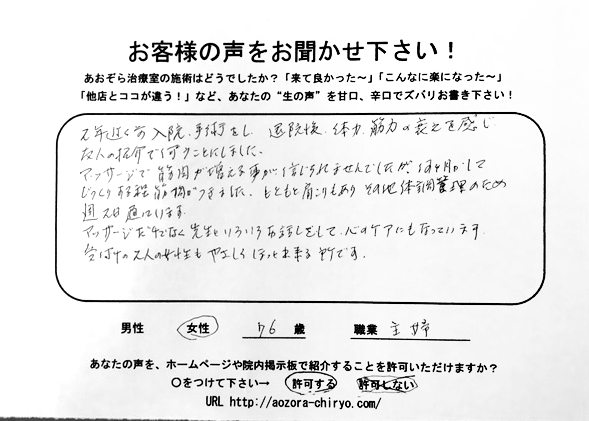 お客様の声をお聞かせ下さい！
あおぞら治療室の施術はどうでしたか？「来て良かった～」「こんなに楽になった～」
「他店とココが違う！」など、あなたの“生の声”を甘口、辛口でズバリお書き下さい！
2年近く前入院、手術をし、退院後、体力、筋力の衰えを感じ
友人の紹介で伺うことにしました。
マッサージで筋肉が増える事が信じられませんでしたが、何ヶ月かして
びっくりする程筋肉がつきました。もともと肩こりもあり その他体調管理のため
週2日通っています。
マッサージだけでなく先生といろいろお話しをして、心のケアにもなっています。
受付の2人の女性もやさしくほっと出来る所です。
男性 女性 76 歳 職業 主婦
あなたの声を、ホームページや院内掲示板で紹介することを許可いただけますか？
〇をつけて下さい→ 許可する 許可しない
URL http://aozora-chiryo.com/